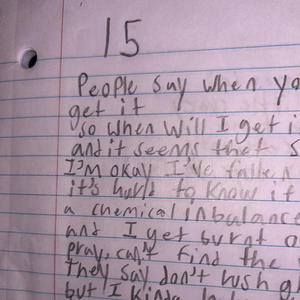 15
People say when yo
get it
so when will I get i
and it seems that s
I'm okay I've fallen
it's hard to know if
a chemical inbalanc
and I get burnt o
pray, can't find the
They say don't rush g
but I kinda